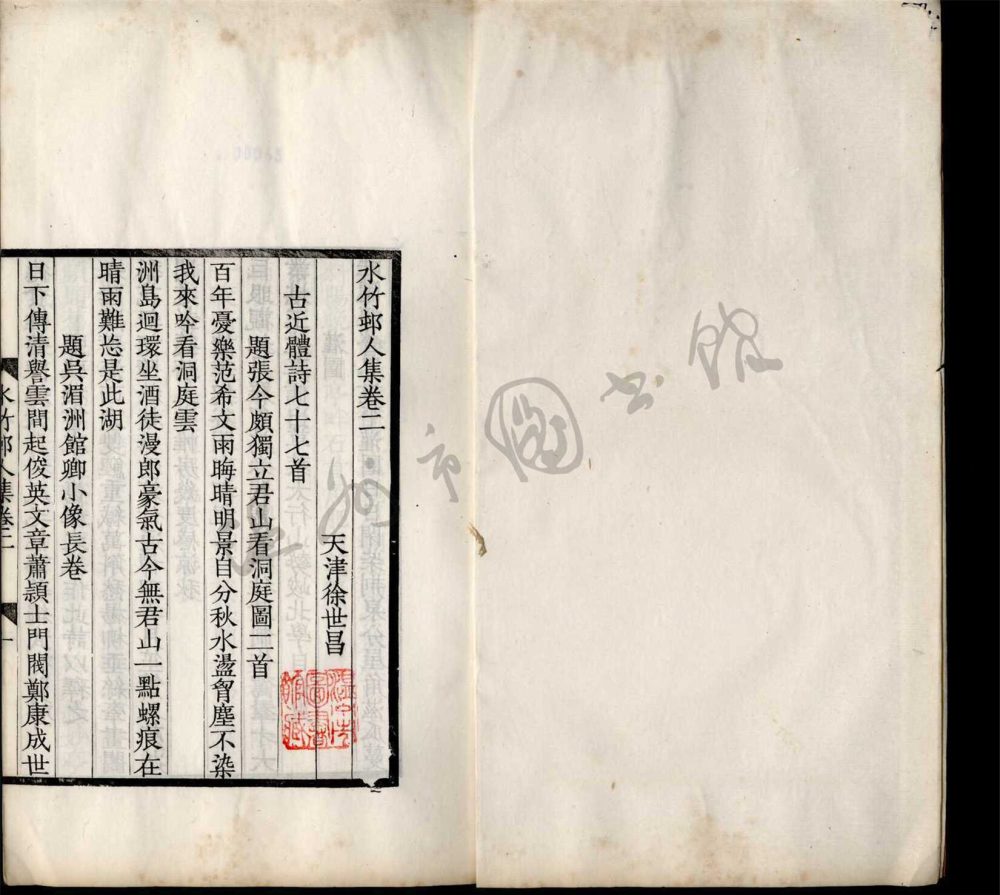 水竹邨人集卷二
天津徐世昌
古近體詩七十七首
題張今頗獨立君山看洞庭圖二首
百年憂樂范希文雨晦晴明景自分秋水盪胷塵不染
我來吟看洞庭雲
洲島迴環坐酒徒漫郎豪氣古今無君山一點螺痕在
晴雨難忘是此湖
題吳湄洲館卿小像長卷
日下傳清譽雲間起俊英文章蕭頴士門閥鄭康成世
水竹邨人集卷二
一
市圖書館